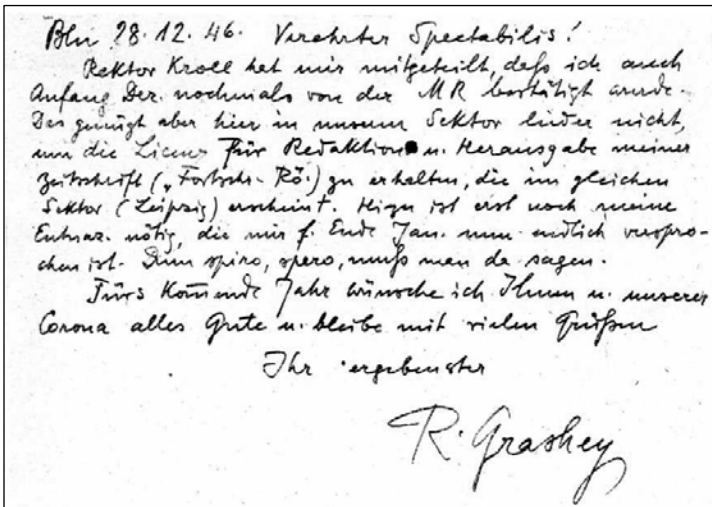 Bln 28.12.46. Verehrter Spectabilis!
Rektor Kroll hat mir mitgeteilt, daß ich auch
Anfang Dez. nochmals von der MR bestätigt wurde.
Das genügt aber hier in unserm Sektor leider nicht,
um die Licenz für Redaktion u. Herausgabe meiner
Zeitschrift („Fortschr. Rö.") zu erhalten, die im gleichen
Sektor (Leipzig) erscheint. Hiezu ist erst noch meine
Entnaz. nötig, die mir f. Ende Jan. nun endlich verspro-
chen ist. Dum spiro, spero, muß man da sagen.
Fürs kommende Jahr wünsche ich Ihnen u. unserer
Corona alles Gute u. bleibe mit vielen Grüßen
Ihr ergebenster
R. Grashey